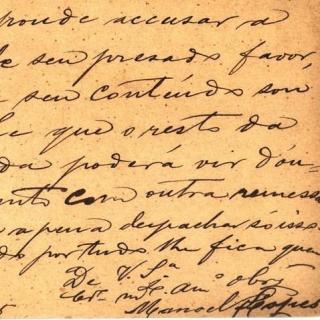 ponde accusar a
de seu presado favor,
e seu conteúdo sou
de que o resto da
da poderá vir d'ou-
ento com outra remessa
e a pena despachar só isso
do por tudo lhe fica que
De V. Sª
Crº mtº Amº obrº
Manoel